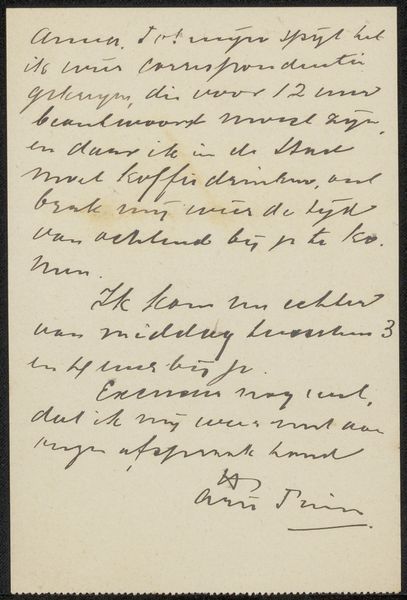 Amice. Tot mijn spijt heb
ik weer correspondentie
gekregen, die voor 12 uur
beantwoord moest zijn,
en daar ik in de Stad
moet koffiedrinken, ont
brak mij weer de tijd
van ochtend bij je te ko-
men.
Ik kom nu echter
van middag tusschen 3
en 4 uur bij je.
Excuseer nog wel,
dat ik mij weer niet aan
mijn afspraak houd